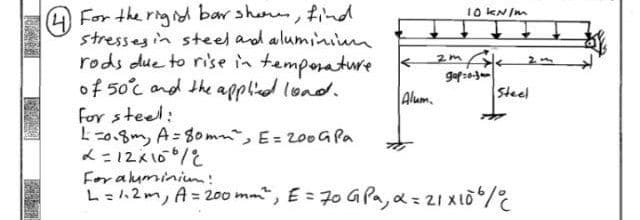 ④ For the rigid bar shown, find
stresses in steel and aluminium
rods due to rise in temperature
of 50°C and the applied load.
For steel:
L=0.8m, A=80mm², E=200GPa
α=12x10⁻⁶/℃
For aluminium:
L=1.2m, A=200mm², E=70GPa, α=21x10⁻⁶/℃
10 kN/m
2m
2m
gap=0.3mm
Alum.
Steel